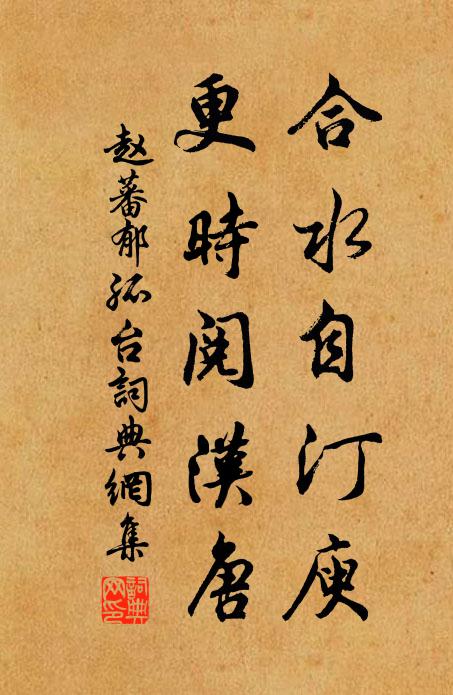 合水自汀庾
更時閱漢唐
赵蕃郁孤台詞典網集
詞典网印